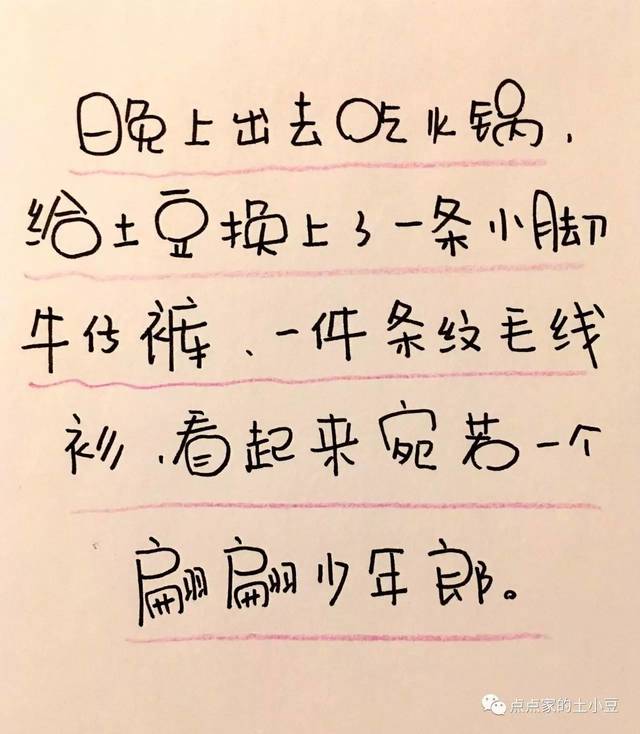 晚上出去吃火锅,
给土豆换上了一条小脚
牛仔裤、一件条纹毛线
衫,看起来宛若一个
翩翩少年郎。
点点家的土小豆